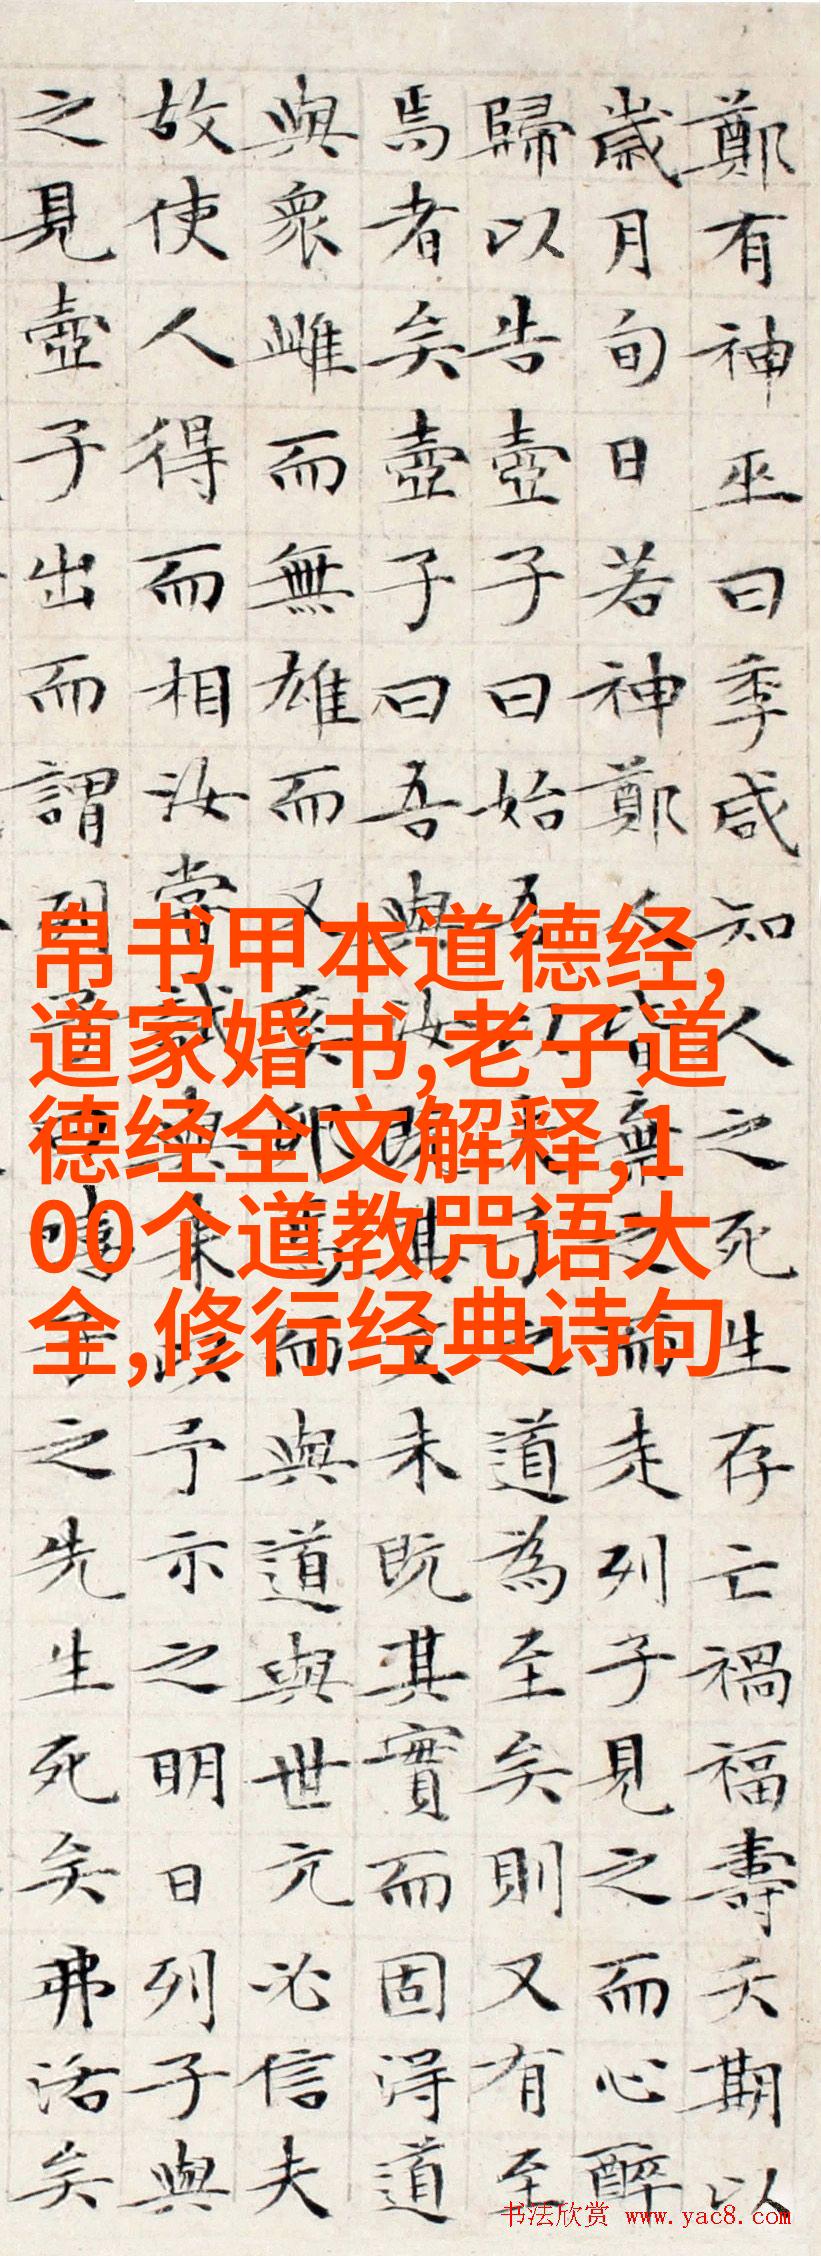 鄭有神巫曰季咸知人之死生存亡禍福壽夭期以
歲月旬日若神鄭人皆之而走列子見之而心醉
歸以告壺子曰始吾以夫子之道為至矣則又有至
焉者矣壺子曰吾與汝既其文未既其實而固得道
與衆雌而無雄而又奚卵焉而與道與世亢必信夫
故使人得而相汝嘗試與來以予示之明日列子與
之見壺子出而謂列子曰嘻子之先生死矣弗活矣
帛书甲本道德经,
道家婚书,老子道
德经全文解释,1
00个道教咒语大
全,修行经典诗句
书法欣赏 www.yac8.com